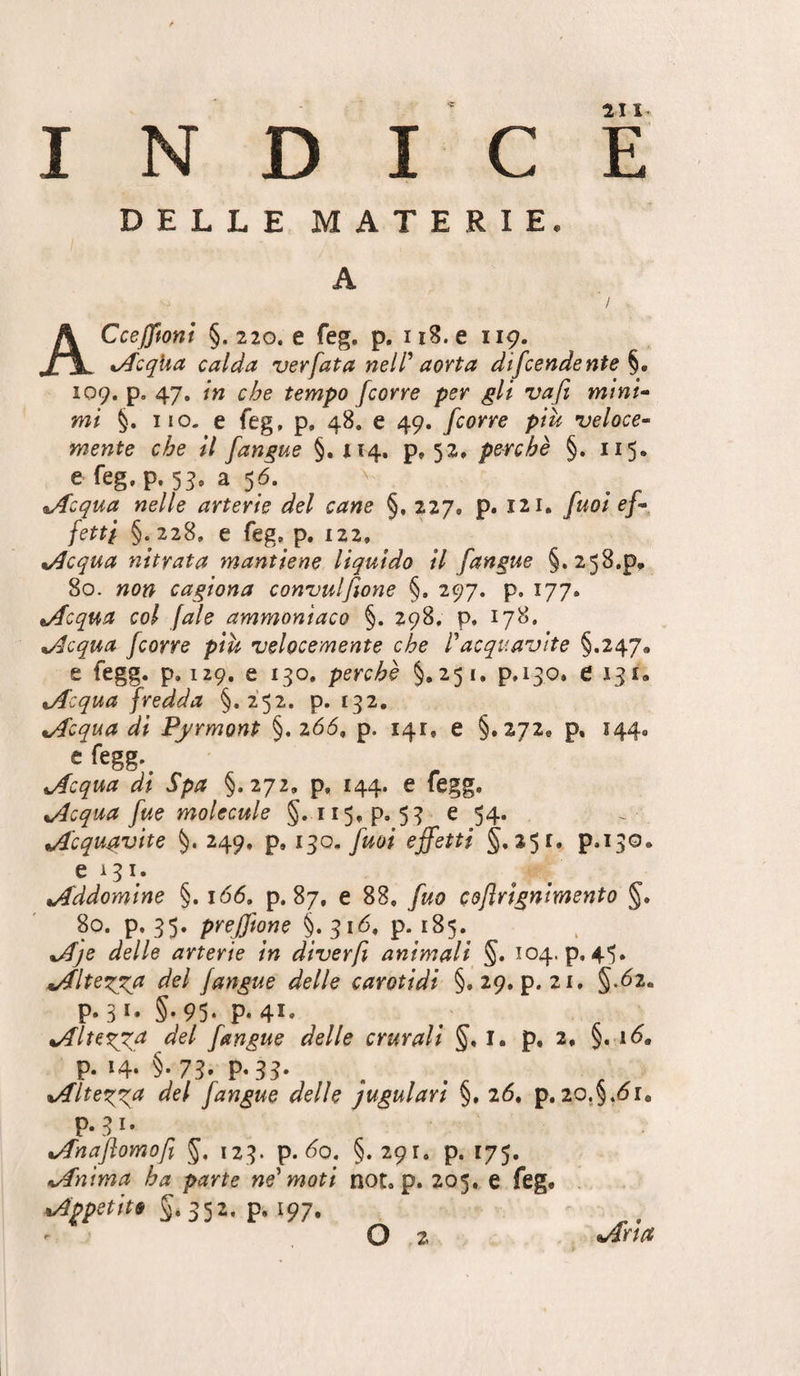 211.
INDICE
DELLE MATERIE.
A
ACceſſioni §. 220. e ſeg. p. 118. e 119.
Acqua calda verſata nell' aorta diſcendente §.
109. p. 47. in che tempo ſcorre per gli vaſi mini-
mi §. 110. e ſeg. p. 48. e 49. ſcorre più veloce-
mente che il ſangue §. 114. p. 52. perchè §. 115.
e ſeg. p. 53. a 56.
Acqua nelle arterie del cane §. 227. p. 121. ſuoi ef-
fetti §. 228. e ſeg. p. 122.
Acqua nitrata mantiene liquido il ſangue §. 258.p.
80. non cagiona convulſione §. 297. p. 177.
Acqua col ſale ammoniaco §. 298. p. 178.
Acqua ſcorre più velocemente che l'acquavite §.247.
e ſegg. p. 129. e 130. perchè §. 251. p.130. e 131.
Acqua fredda §. 252. p. 132.
Acqua di Pyrmont §. 266. p. 141. e §. 272. p. 144.
e ſegg.
Acqua di Spa §. 272. p. 144. e ſegg.
Acqua ſue molecule §. 115. p. 53 e 54.
Acquavite §. 249. p. 130. ſuoi effetti §. 251. p.130.
e 131.
Addomine §. 166. p. 87. e 88. ſuo coſtrignimento §.
80. p. 35. preſſione §. 316. p. 185.
Aje delle arterie in diverſi animali §. 104. p. 45.
Altezza del ſangue delle carotidi §. 29. p. 21. §.62.
p. 31. §. 95. p. 41.
Altezza del ſangue delle crurali §. 1. p. 2. §. 16.
p. 14. §. 73. p. 33.
Altezza del ſangue delle jugulari §. 26. p. 20.§.61.
p. 31.
Anaſtomoſi §. 123. p. 60. §. 291. p. 175.
Anima ha parte ne' moti not. p. 205. e ſeg.
Appetito §. 352. p. 197.
O 2 Aria